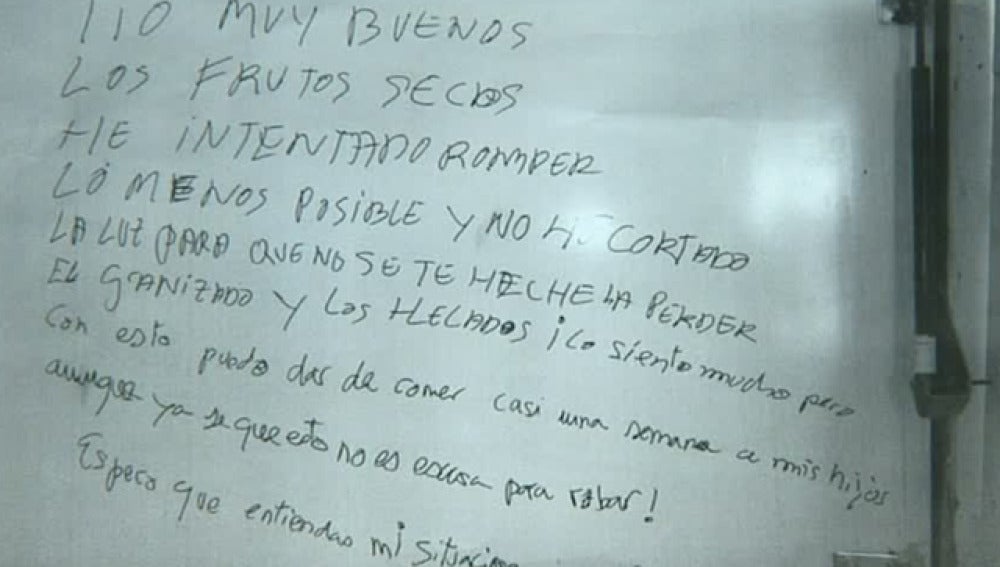 TIO MUY BUENOS
LOS FRUTOS SECOS
HE INTENTADO ROMPER
LO MENOS POSIBLE Y NO H. CORTADO
LA LUZ PARA QUE NO SE TE HECHE LA PERDER
EL GRANIZADO Y LOS HELADOS ¡Lo siento mucho pero
con esto puedo dar de comer casi una semana a mis hijos
aunque ya se que esto no es excusa para robar!
Espero que entiendas mi situacion